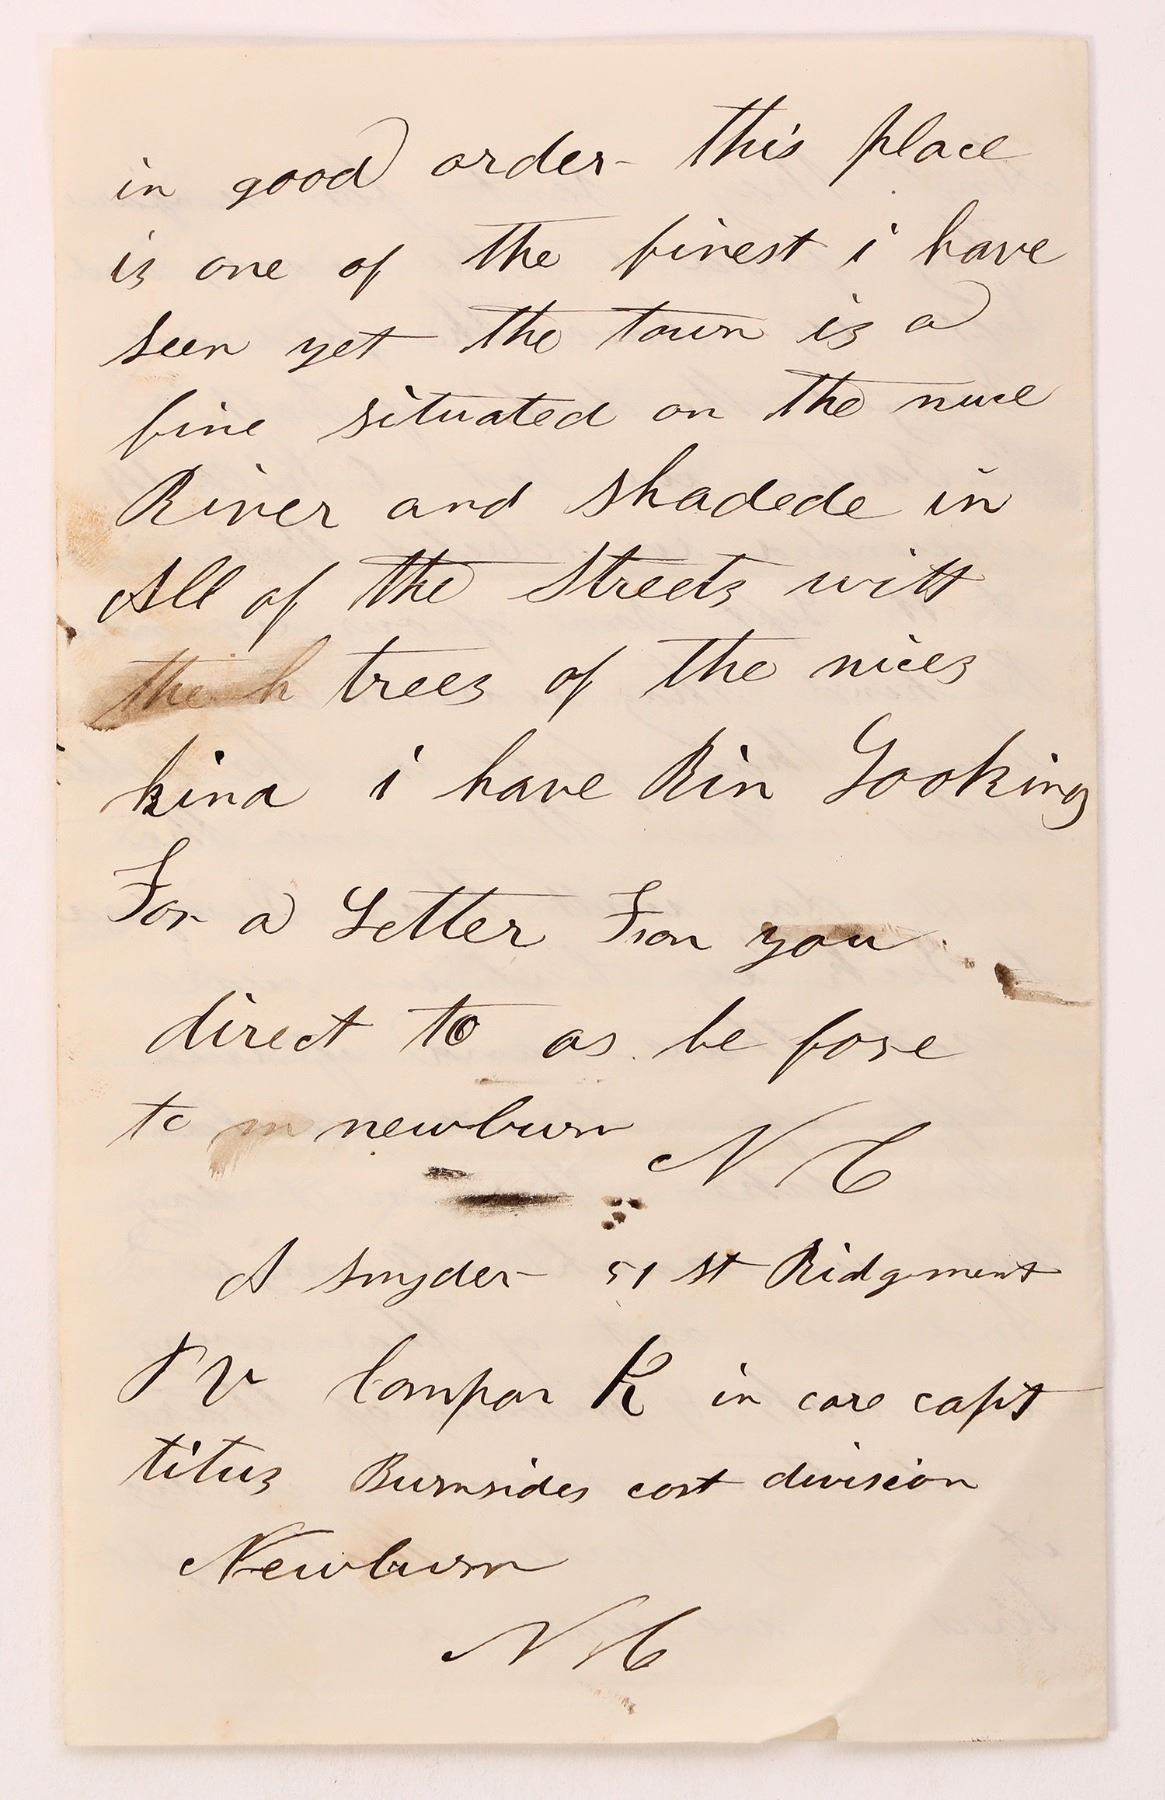 in good order this place
is one of the finest i have
seen yet the town is a
fine situated on the nuce
River and shadede in
All of the Streets witt
the h trees of the nices
kind i have Bin Looking
For a Letter From you
direct to as be fore
to m newburn N C
A Snyder 51 st Ridgment
P V Compan K in care capt
titus Burnsides cost division
Newburn
N C